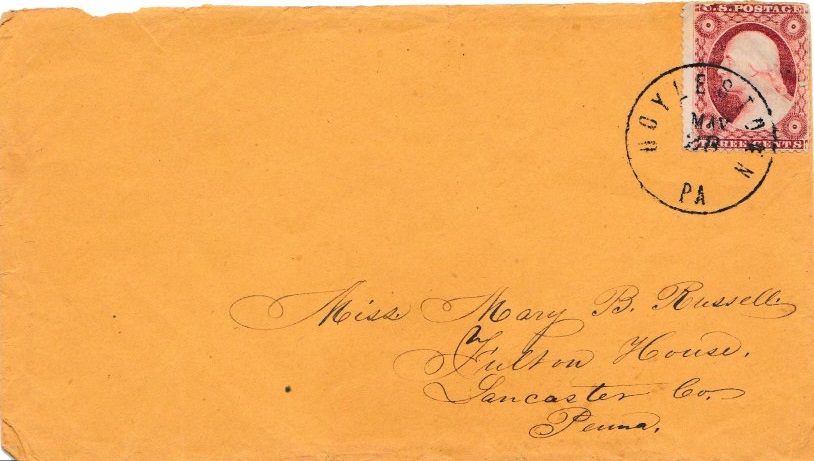 U.S. POSTAGE
THREE CENTS
DOYLESTOWN
MAR
PA
Miss Mary B. Russell,
Fulton House,
Lancaster Co.
Penna.